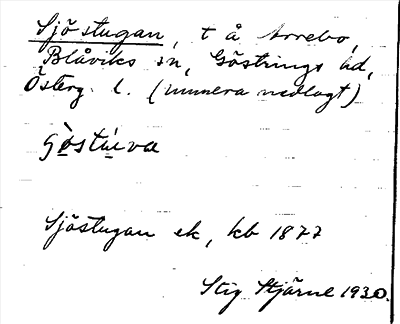 Sjöstugan, t å Norrebo,
Blåviks sn, Göstrings hd,
Österg. l. (numera nedlagt)
Sjöstugan ek, kb 1877
Stig Stjärne 1930.